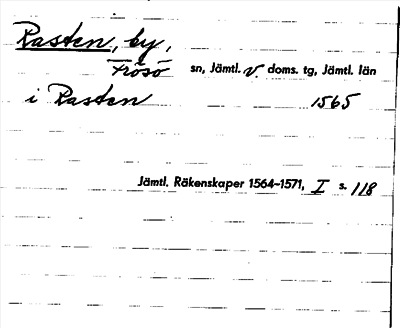 Rasten, by,
Frösö sn, Jämtl. v. doms. tg, Jämtl. län
i Rasten 1565
Jämtl. Räkenskaper 1564-1571, I s. 118